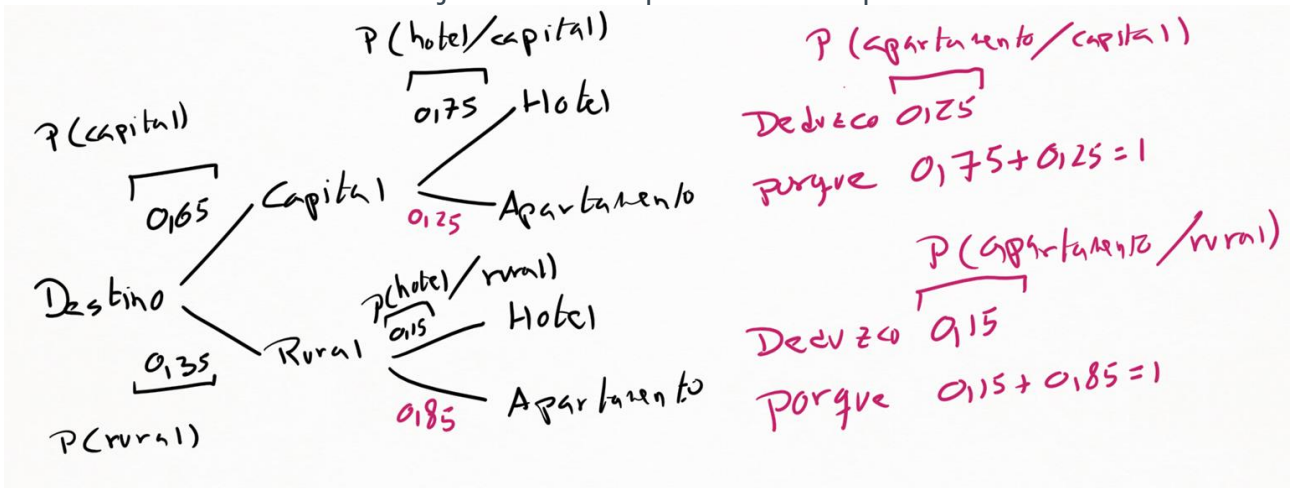 P(hotel/capital)
P(capital)
0,75
Hotel
0,65
Capital
0,25
Apartamento
Destino
P(hotel/rural)
0,15
Hotel
0,35
Rural
0,85
Apartamento
P(rural)
P(apartamento/capital)
Deduzco 0,25
porque 0,75+0,25=1
P(apartamento/rural)
Deduzco 0,15
porque 0,15+0,85=1